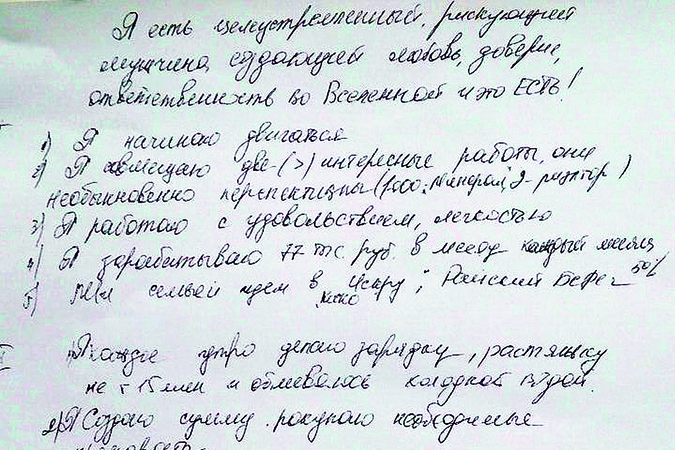 Я есть целеустремленный, рискующий
мужчина, создающий любовь, доверие,
ответственность во Вселенной и это ЕСТЬ!
1) Я начинаю двигаться
2) Я совмещаю две (>) интересные работы, они
необыкновенно перспективны (1000: Минерал; 2-риэлтор)
3) Я работаю с удовольствием, легкостью
4) Я зарабатываю 77 тыс. руб. в месяц каждый месяц
5) семьей идем в Искру; Райский Берег 50%
1) Каждое утро делаю зарядку, растяжку
не < 15 мин и обливаюсь холодной водой.
2) Я Создаю сумму. покупаю необходимые